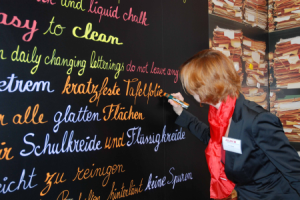 and liquid chalk
easy to clean
in daily changing letterings do not leave any
extrem kratzfeste Tafelfolie
für alle glatten Flächen
für Schulkreide und Flüssigkreide
leicht zu reinigen
hinterläßt keine Spuren